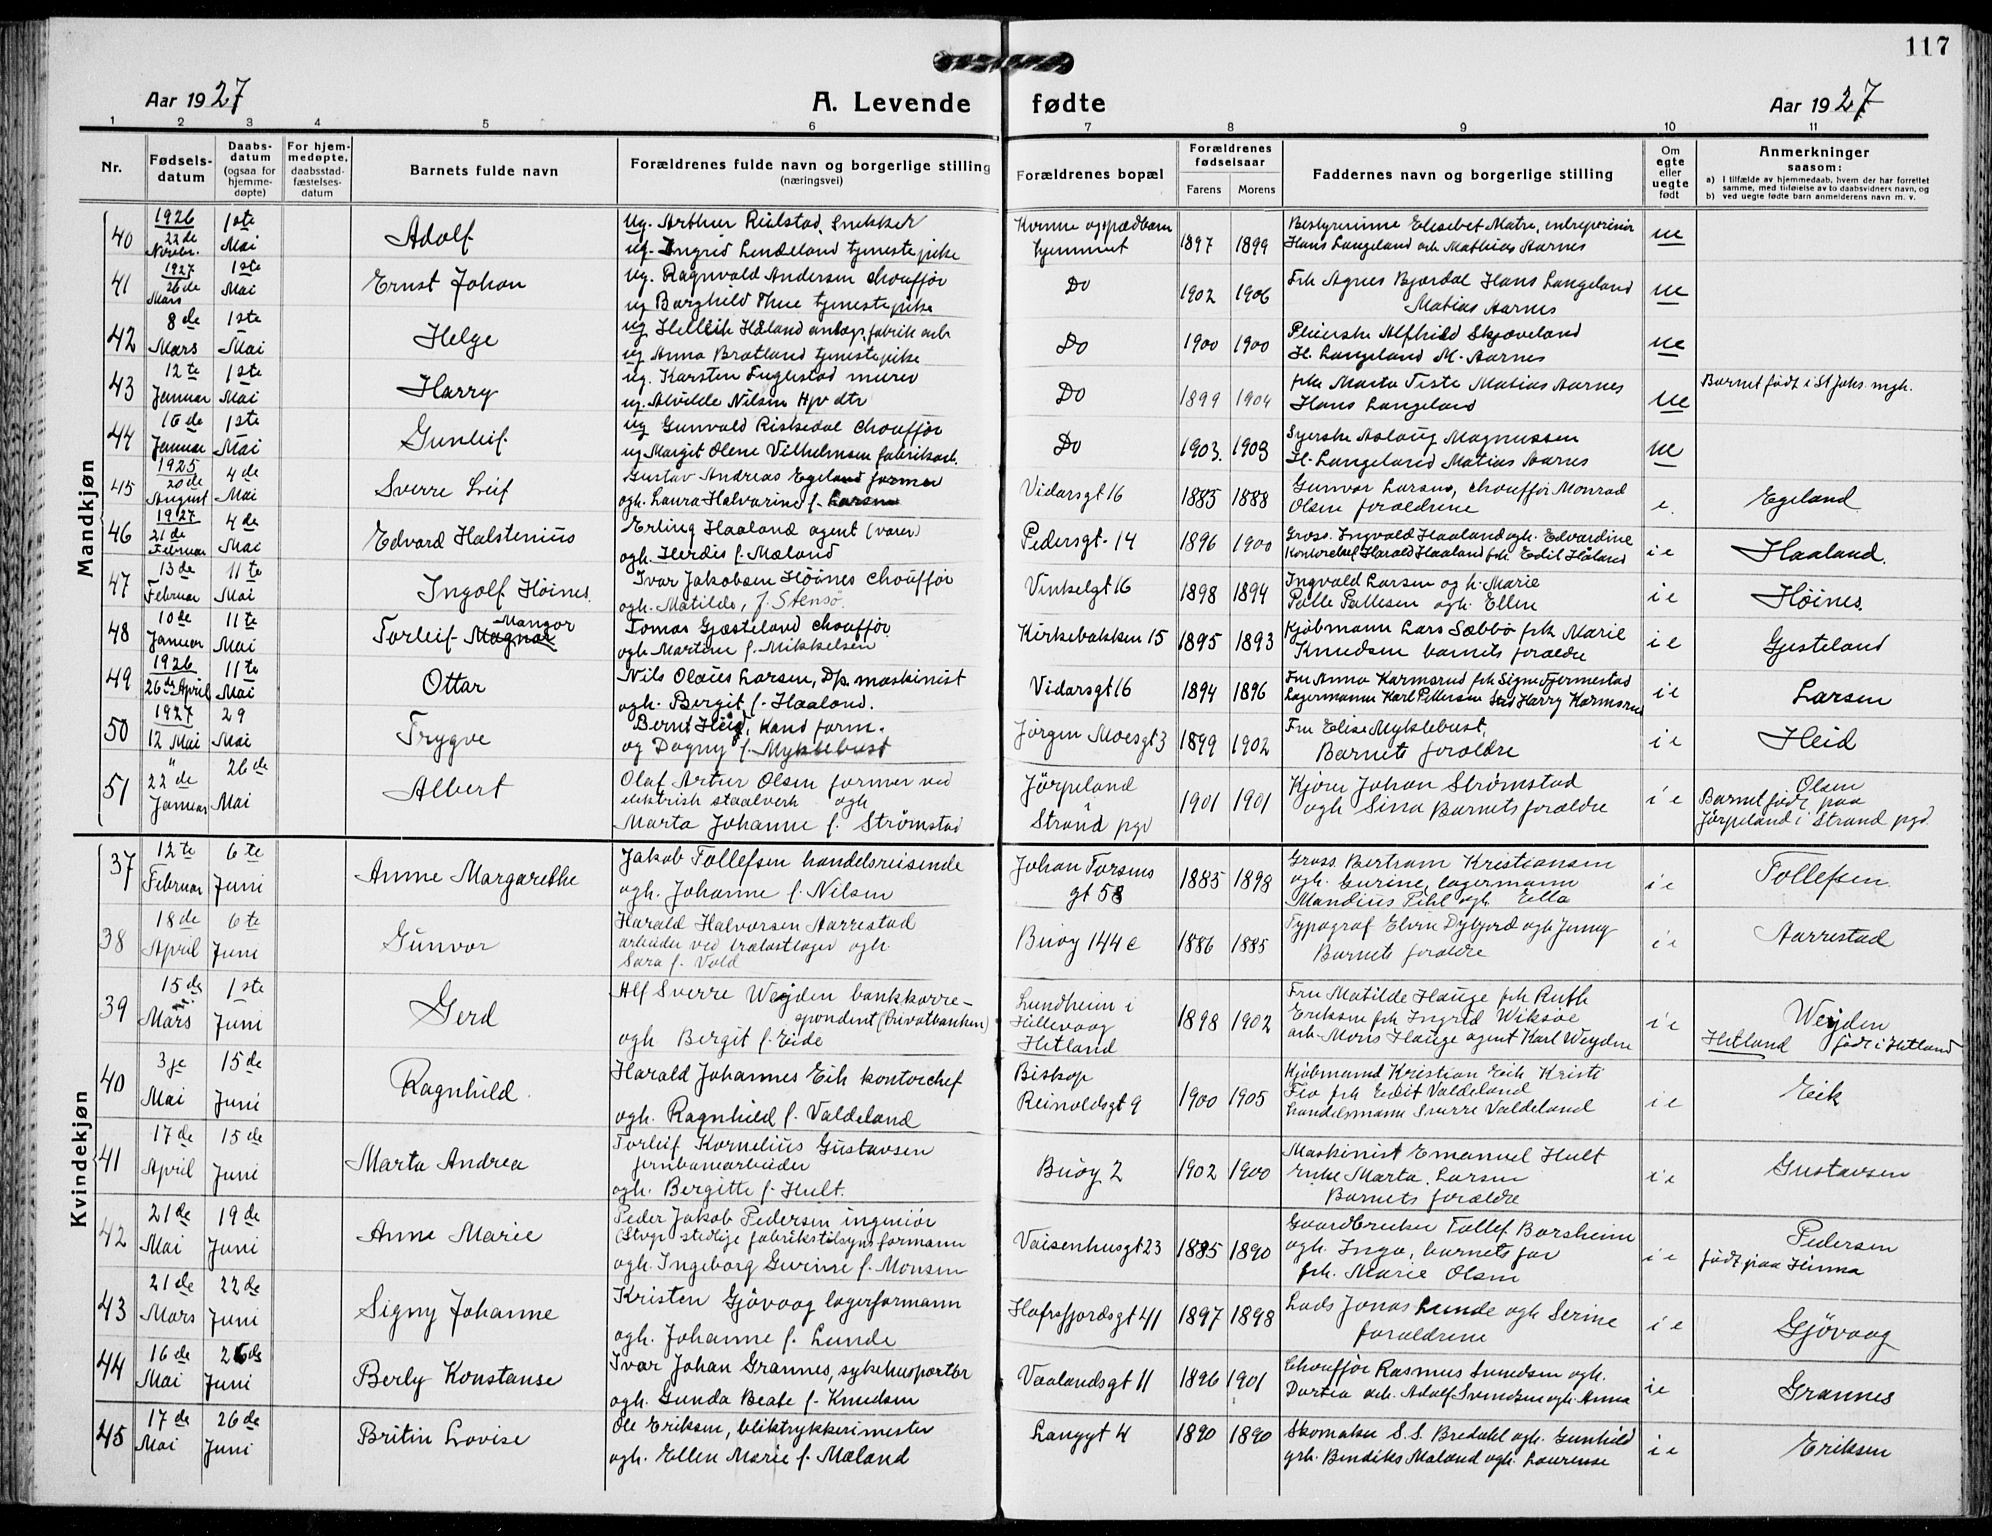 117
Aar 1927
A. Levende fødte
Aar 1927
1 2 3 4 5 6 7 8 9 10 11
Nr.
Fødselsdatum
Daabsdatum (ogsaa for hjemmedøpte)
For hjemmedøpte, daabsstadfæstelsesdatum
Barnets fulde navn
Forældrenes fulde navn og borgerlige stilling (næringsvei)
Forældrenes bopæl
Forældrenes fødselsaar
Farens Morens
Faddernes navn og borgerlige stilling
Om egte eller uegte født
Anmerkninger
saasom:
a) I tilfælde av hjemmedaab, hvem der har forrettet samme, med tilføielse av to daabsvidners navn, og
b) ved uegte fødte barn anmelderens navn m. v.
Mandkjøn
40
1926 22de Novbr.
1ste Mai
Adolf
ug. Arthur Snekker
ug. Ingrid Lendeland tjenestepike
Kvinne og spædbarn hjemmet
1897 1899
Bestyrerinne Elisebet Matre, entreprenør
Hans Langeland och Mathias Aarnes
ue
41
1927 26de Mars
1ste Mai
Ernst Johan
ug. Ragnvald Andersen chouffør
ug Borghild Thue tjenestepike
Do
1902 1906
Frk Agnes Bjørdal Hans Langeland
Matias Aarnes
ue
42
8de Mars
1ste Mai
Helge
ug Helleik Håland fabrik arb
ug Anna Bratland tjenestepike
Do
1900 1900
Pleierske Alfhild Skjæveland
H. Langeland M. Aarnes
ue
43
12te Januar
1ste Mai
Harry
ug. Karsten Fuglestad murer
ug. Alvilde Nilsen Hjv dtr
Do
1899 1904
frk Marta Tiste Matias Aarnes
Hans Langeland
ue
Barnet født i St Johs. mgh.
44
16de Januar
1ste Mai
Gunleif
ug Gunvald Riskedal chouffør
ug Margit Olene Vilhelmsen fabrikarb.
Do
1903. 1903
Syerske Aslaug Magnussen
H. Langeland Matias Aarnes
ue
45
1925 20de August
4de Mai
Sverre Leif
Gustav Andreas Egeland former
ogh. Laura Halvarine f. Larsen
Vidarsgt 16
1885 1888
Gunvor Larsen, chouffør Monrad
Olsen foraldrene
e.
Egeland
46
1927 21de Februar
4de Mai
Edvard Halstenius
Erling Haaland agent (varer)
ogh. Herdis f. Mæland
Pedersgt. 14
1896 1900
Gross. Ingvald Haaland ogh. Edvardine
Kontorchef Harald Haaland frk Edil Håland
i e
Haaland.
47
13de Februar
11te Mai
Ingolf Høines.
Ivar Jakobsen Høines chouffør
ogh. Matilde, f. Stensø.
Vinkelgt 16
1898 1894
Ingvald Larsen og h. Marie
Palle Pallesen ogh. Ellen
i e
Høines.
48
10de Januar
11te Mai
Mangor
Torleif Magnar
Tomas Gjesteland chouffør
ogh Martine f. Mikkelsen
Kirkebakken 15
1895 1893
Kjøbmann Lars Sæbbø frk Marie
Knudsen barnets foraldre
i e
Gjesteland
49
1926 26de April
11te Mai
Ottar
Nils Olaus Larsen, Dp. maskinist
ogh. Bergit f. Haaland.
Vidarsgt 16
1894 1896
Fru Anna Karmsrud frk Signe Fjermestad
Lagermann Karl Pettersen Stud Harry Karmsrud
i e
Larsen
50
1927 12 Mai
29 Mai
Trygve
Bernt Heid, Kand farm.
og Dagny f. Myklebust
Jørgen Moesgt 3
1899 1902
Fru Elise Myklebust,
Barnets foraldre
i e
Heid
51
" 22de Januar
26de Mai
Albert
Olaf Artur Olsen former ved
elektrisk staalverk ogh
Marta Johanne f. Strømstad
Jörpeland
Strand pgd
1901 1901
Kjöre Johan Strømstad
ogh Sina Barnets foraldre
i e
Olsen
Barnet født paa
Jörpeland i Strand pgd
Kvindekjøn
37
12te Februar
6te Juni
Anne Margarethe
Jakob Tollefsen handelsreisende
ogh. Johanne f. Nilsen
Johan Torsens
gt 58
1885 1898
Gross Bertram Kristiansen
ogh. Gurine, lagermann
Mandius Pihl ogh Ella
i e
Tollefsen
38
18de April
6te Juni
Gunvor
Harald Halvorsen Aarrestad
arbeider ved trælastlager ogh
Sara f. Vold
Buøy 144 e
1886 1885
Typograf Elvin Dybjord ogh Jenny
Barnets foraldre
i e
Aarrestad
39
15de Mars
1ste Juni
Gerd
Alf Sverre Weyden bankkorre-
spondent (Privatbanken)
ogh Bergit f. Eide
Lundheim i
Hillevaag
Hetland
1898 1902
Fru Matilde Hauge frk Ruth
Eriksen frk Ingrid Wiksøe
och Mons Hauge agent Karl Weyden
i e
Weyden
Hetland født i Hetland
40
3je Mai
15de Juni
Ragnhild
Harald Johannes Eik kontorchef
ogh. Ragnhild f. Valdeland
Biskop
Reinoldsgt 9
1900 1905
Kjøbmand Kristian Eik Kristi
frk Edit Valdeland
handelsmann Sverre Valdeland
i e
Eik
41
17de April
15de Juni
Marta Andrea
Torleif Kornelius Gustavsen
jernbanearbeider
ogh. Bergitte f. Hult.
Buøy 2
1902 1900
Maskinist Emanuel Hult
enke Marta Larsen
Barnets foraldre
i e
Gustavsen
42
21de Mai
19de Juni
Anne Marie
Peder Jakob Pedersen ingeniør
(Stvgr stedlige fabrikstilsyns formann
ogh. Ingeborg Gurine f. Monsen
Vaisenhusgt 23
1885 1890
Gaardbruker Tollef Barsheim
ogh. Inga, barnets far
frk. Marie Olsen
i e
Pedersen
født paa Hinna
43
21de Mars
22de Juni
Signy Johanne
Kristen Gjövaag lagerformann
ogh. Johanne f. Lunde
Hafrsfjordsgt 41
1897 1898
Lads Jonas Lunde ogh Serine
foraldrene
i e
Gjövaag
44
16de Mai
26de Juni
Berly Konstanse
Ivar Johan Grannes, sykehusportør
ogh. Gunda Beate f. Knudsen
Vaalandsgt 11
1896 1901
Chouffør Rasmus Svendsen ogh.
Dortea och. Adolf Svendsen ogh. Anna
ie
Grannes
45
17de Mai
26de Juni
Britin Lovise
Ole Eriksen, bliktrykkerimester
ogh. Ellen Marie f. Mæland
Langgt 4
1890 1890
Skomaker S. S. Bredahl ogh. Gunhild
grh. Bendiks Mæland ogh. Laurense
i e
Eriksen